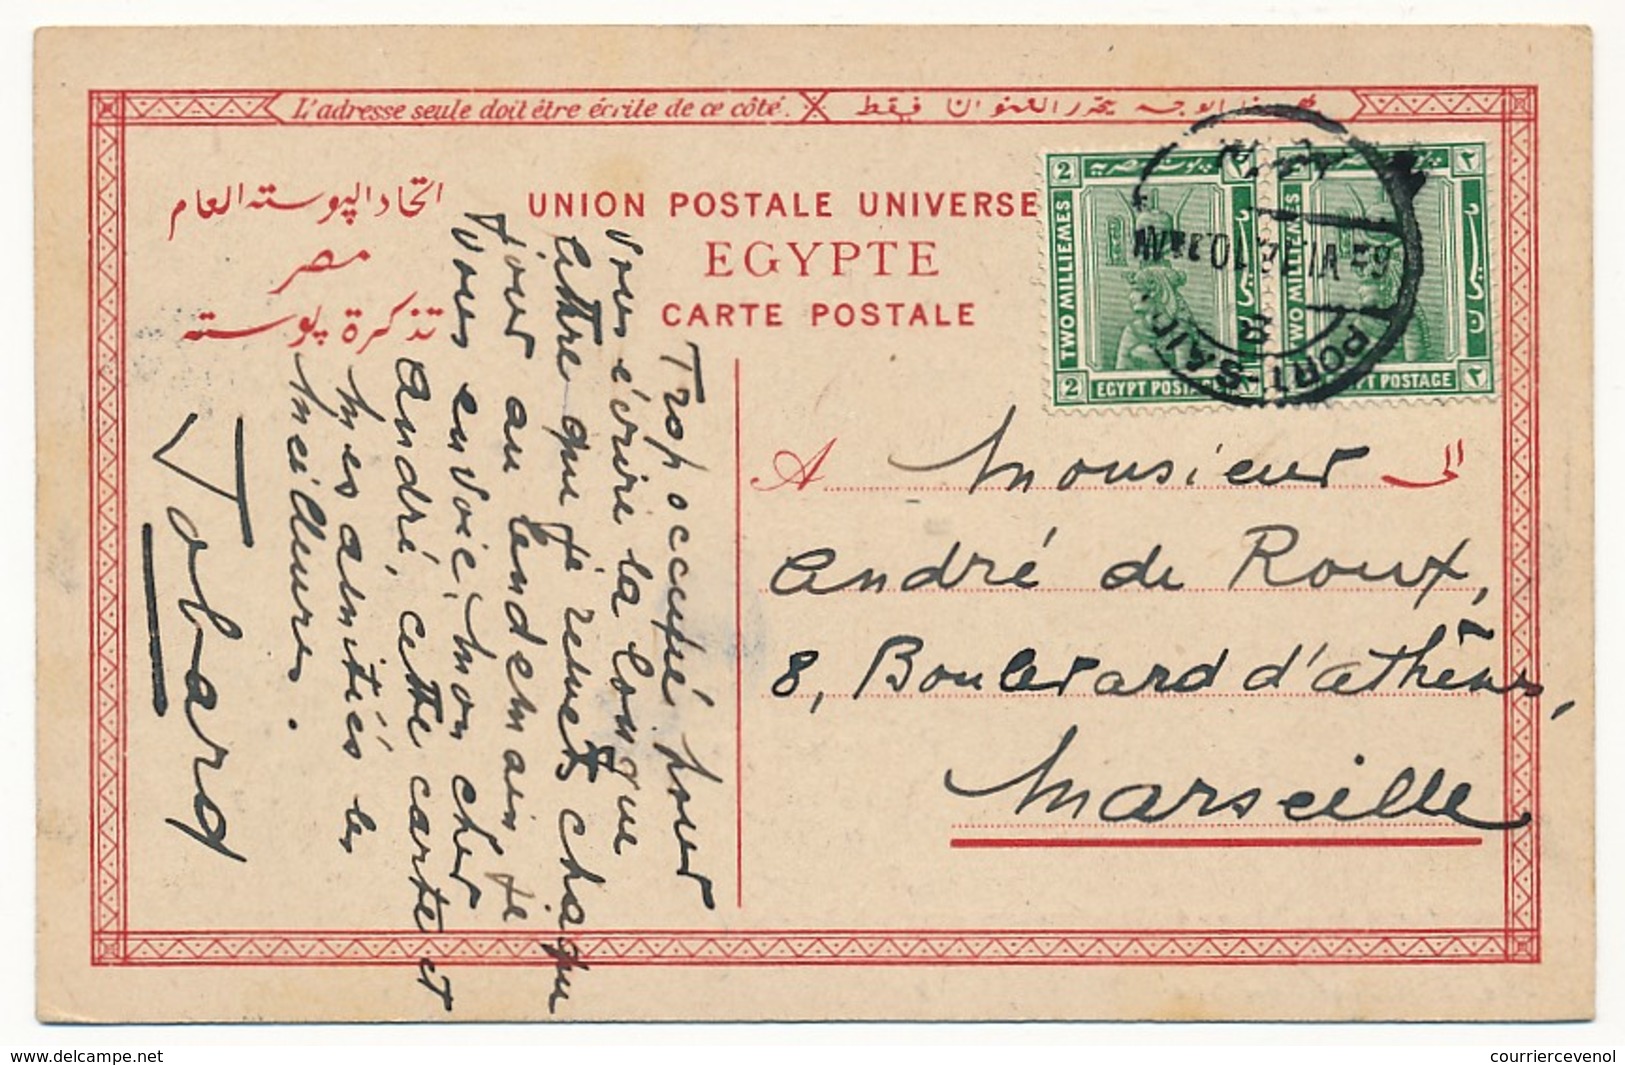 L'adresse seule doit être écrite de ce côté.
اتحاد البوسته العام
مصر
تذكرة بوسته
UNION POSTALE UNIVERSE
EGYPTE
CARTE POSTALE
2
بوسته مصرية
TWO MILLIEMES
2
EGYPT POSTA
٢
TWO MILLIEMES
EGYPT POSTAGE
٢
PORT-SAID
VI
Trop occupé pour
vous écrire la longue
lettre que je remets chaque
jour au lendemain, je
vous envoie, mon cher
André, cette carte et
mes amitiés les
meilleures.
J Tobard
A Monsieur الى
André de Roux,
8, Boulevard d'Athènes,
Marseille
delcampe.net
courriercevenol